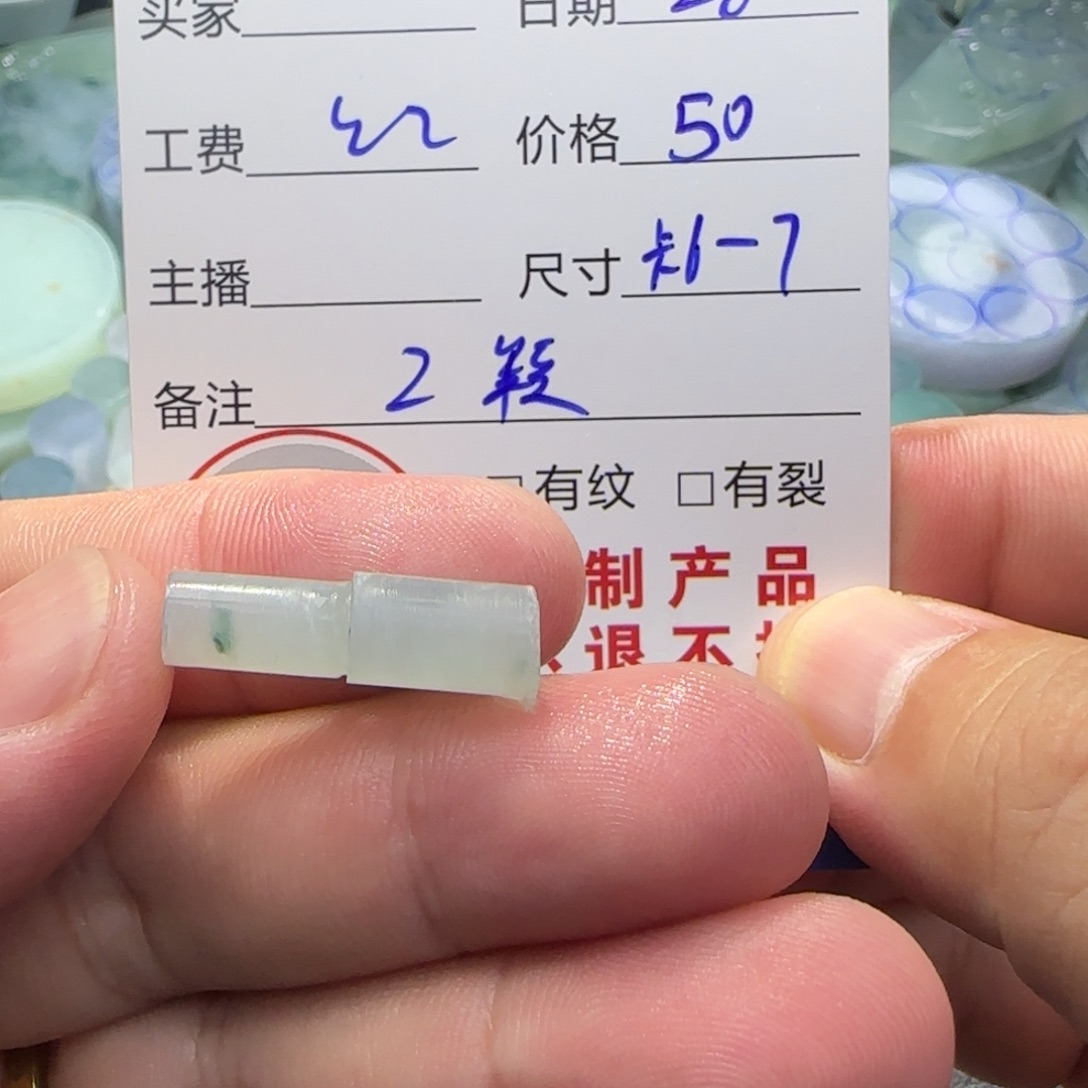 买家 日期
工费 价格 50
主播 尺寸 卡6-7
备注 2 段
有纹 □有裂
制产品
退不